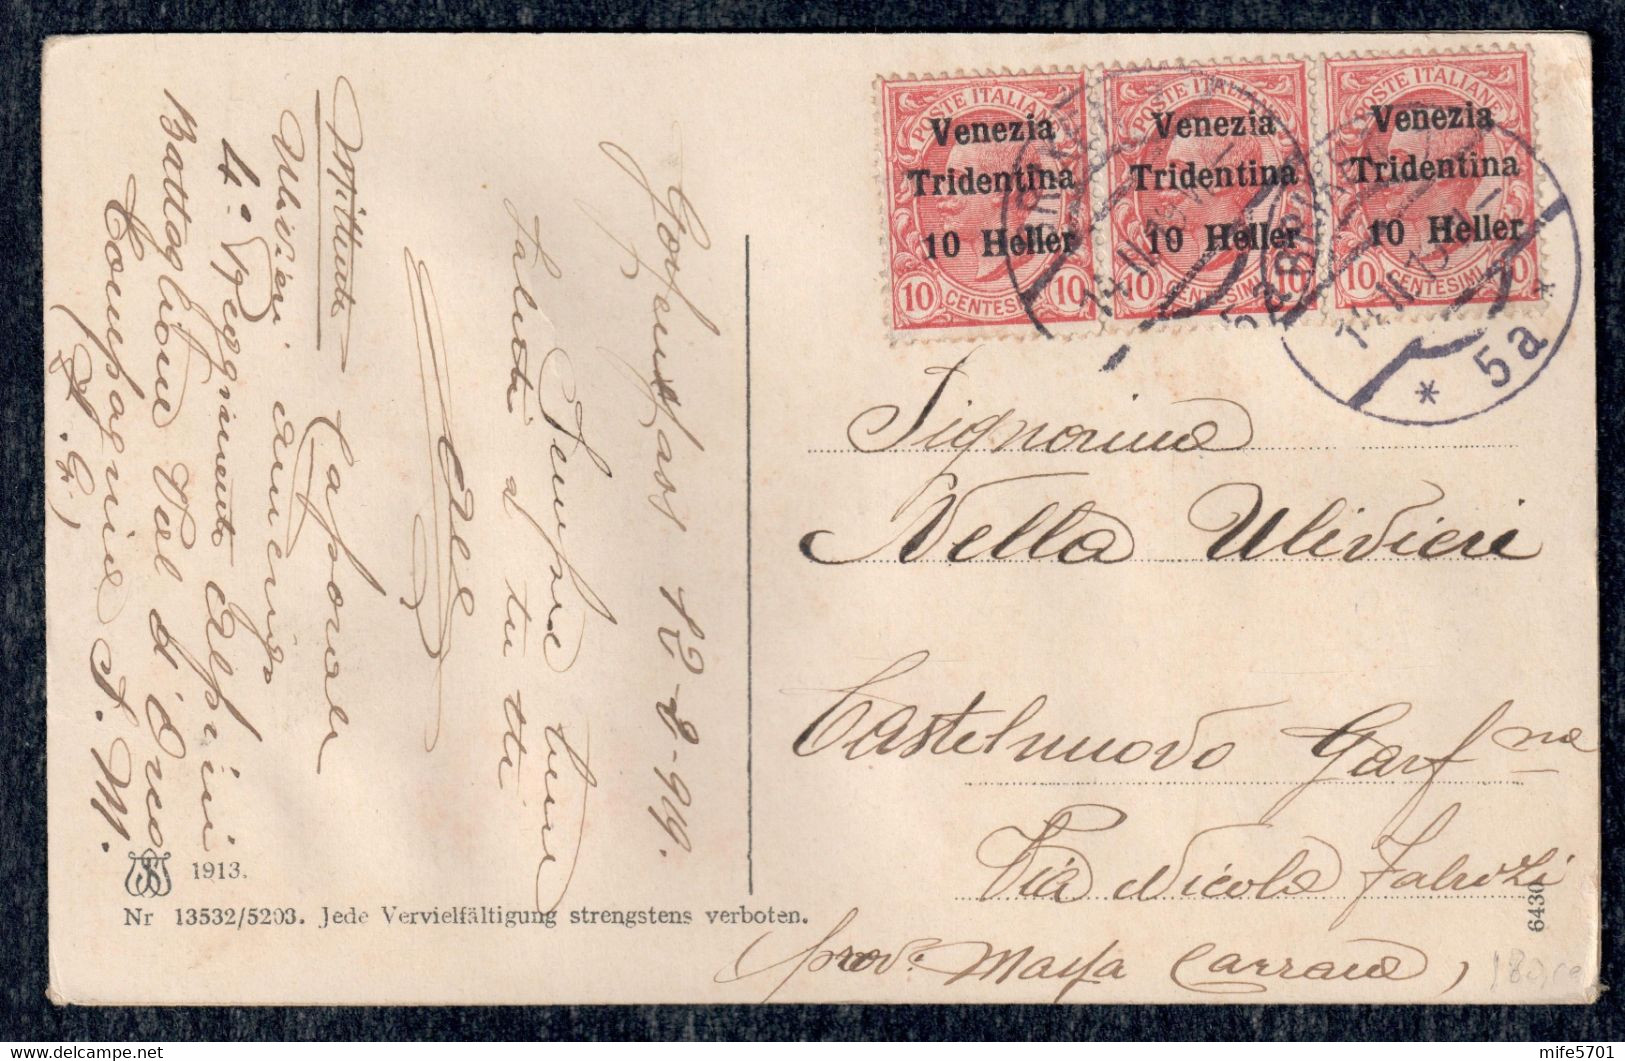 POSTE ITALIANE
Venezia
Tridentina
10 Heller
10 CENTESIMI 10
POSTE ITALIANE
Venezia
Tridentina
10 Heller
10 CENTESIMI 10
POSTE ITALIANE
Venezia
Tridentina
10 Heller
10 CENTESIMI 10
* 5a
Signorina
Nella Ulivieri
Castelnuovo Garf na
Via Nicola Fabrizi
prov. Massa Carrara
Mittente
Caporale
Ulivieri
4° Reggimento Alpini
Battaglione Val d'Orco
Compagnia S. M.
12-2-919.
Sempre bene
Saluti a tutti
1913.
Nr 13532/5203. Jede Vervielfältigung strengstens verboten.
6430
mife5701